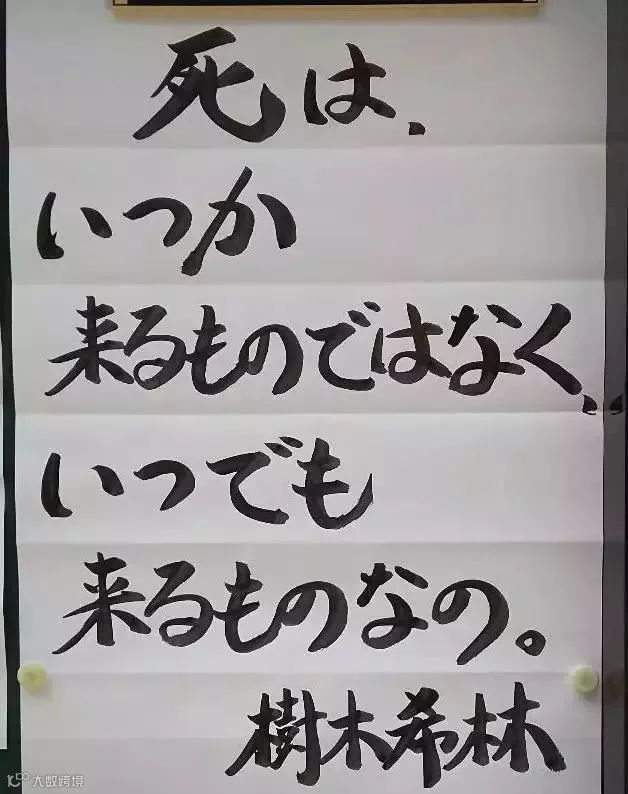 死は、
いつか
来るものではなく、
いつでも
来るものなの。
樹木希林
大数跨境